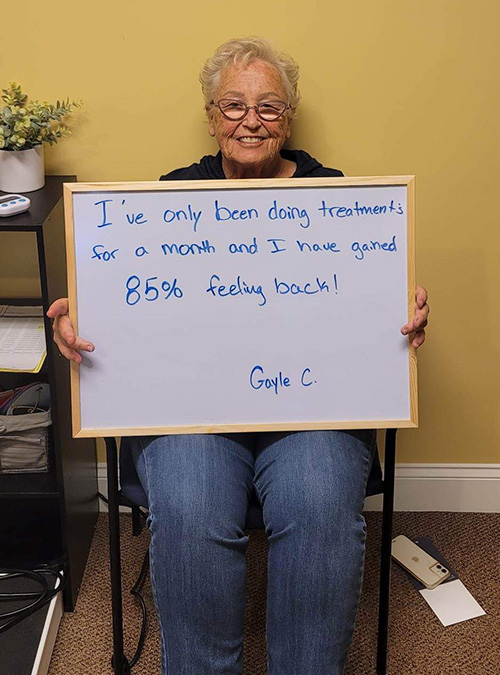 I've only been doing treatments
for a month and I have gained
85% feeling back!
Gayle C.